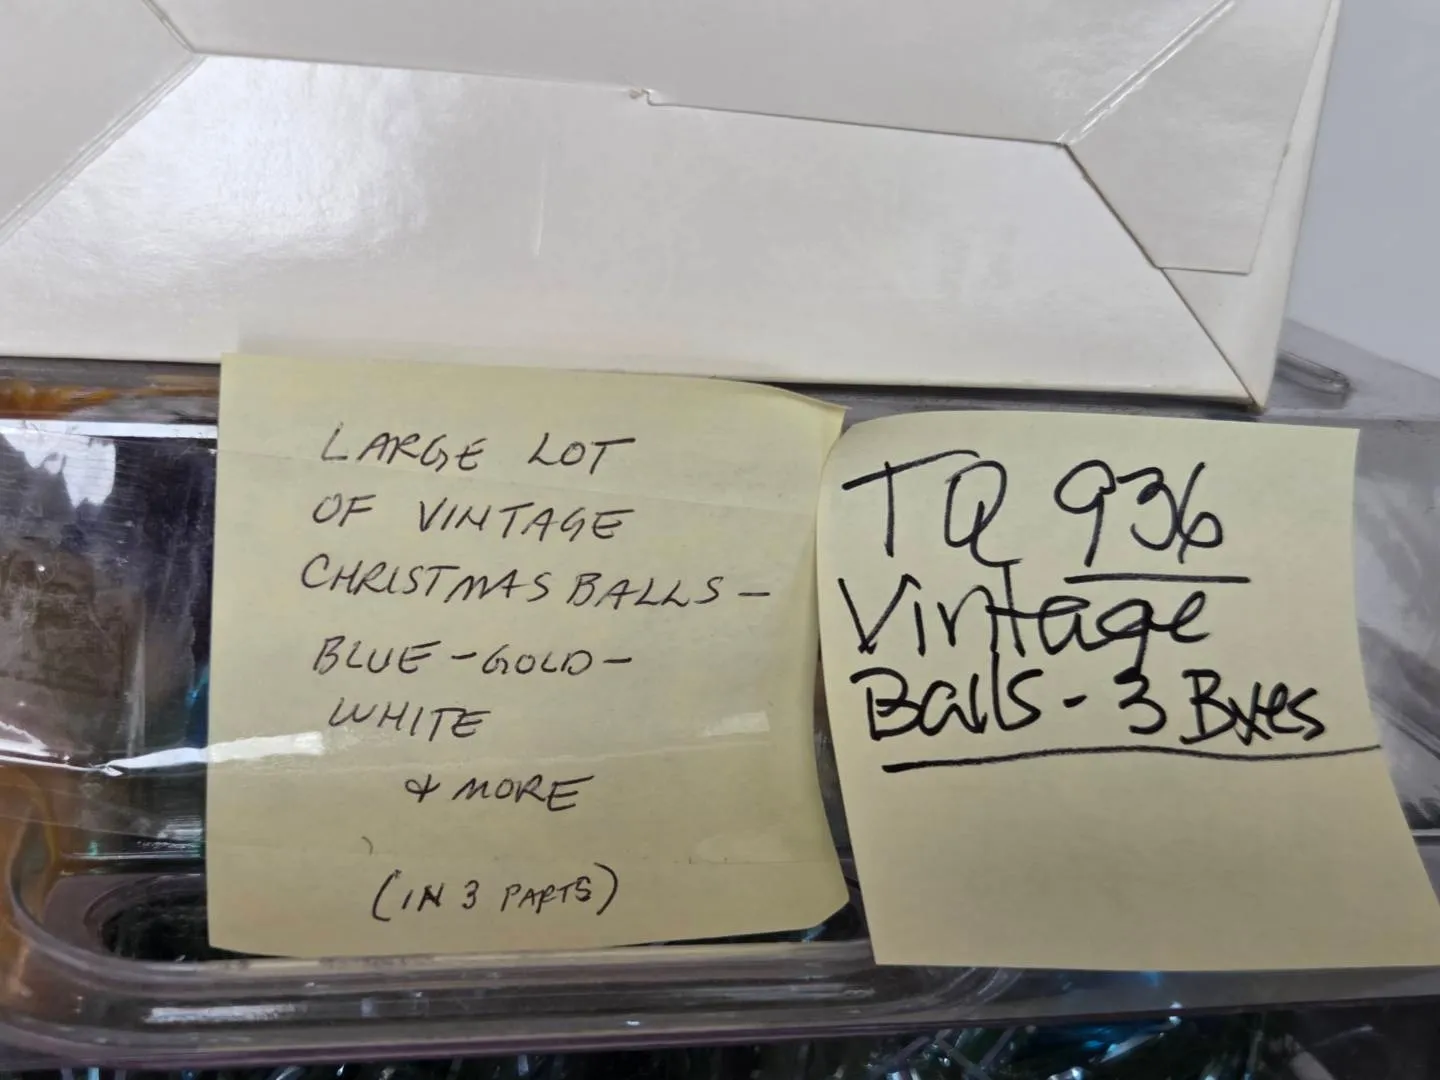 LARGE LOT
OF VINTAGE
CHRISTMAS BALLS -
BLUE - GOLD -
WHITE
& MORE
(IN 3 PARTS)
TQ 936
Vintage
Balls - 3 Bxes